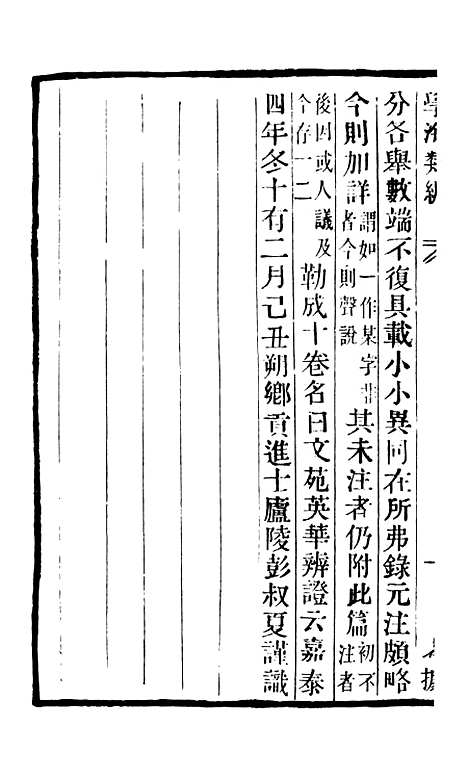 學海類編
分各舉數端不復具載小小異同在所弗錄元注頗略
今則加詳謂如一作某字非者今則聲說其未注者仍附此篇初不注者
後因或人議及今存一二勒成十卷名曰文苑英華辨證云嘉泰
四年冬十有二月己丑朔鄉貢進士廬陵彭叔夏謹識